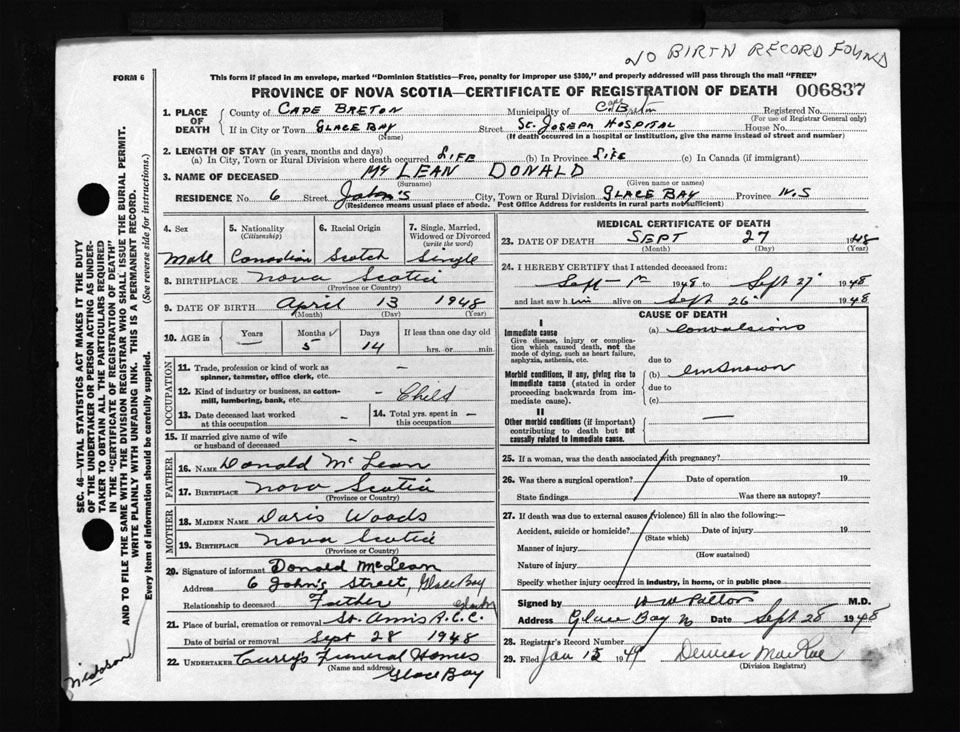 NO BIRTH RECORD FOUND
FORM 6
This form if placed in an envelope, marked "Dominion Statistics—Free, penalty for improper use $300," and properly addressed will pass through the mail "FREE"
PROVINCE OF NOVA SCOTIA—CERTIFICATE OF REGISTRATION OF DEATH 006837
1. PLACE OF DEATH County of CAPE BRETON Municipality of Cape Breton Registered No.
(For use of Registrar General only)
If in City or Town GLACE BAY Street ST. JOSEPH HOSPITAL House No.
(Name) (If death occurred in a hospital or institution, give the name instead of street and number)
2. LENGTH OF STAY (in years, months and days)
(a) In City, Town or Rural Division where death occurred LIFE (b) In Province LIFE (c) In Canada (if immigrant)
3. NAME OF DECEASED McLEAN DONALD
(Surname) (Given name or names)
RESIDENCE No 6 Street John's City, Town or Rural Division GLACE BAY Province N.S
(Residence means usual place of abode. Post Office Address for residents in rural parts not sufficient)
4. Sex 5. Nationality (Citizenship) 6. Racial Origin 7. Single, Married, Widowed or Divorced (write the word)
Male Canadian Scotch Single
8. BIRTHPLACE Nova Scotia
(Province or Country)
9. DATE OF BIRTH April 13 1948
(Month) (Day) (Year)
10. AGE in Years Months Days If less than one day old
— 5 14 hrs. or min.
OCCUPATION
11. Trade, profession or kind of work as spinner, teamster, office clerk, etc. —
12. Kind of industry or business, as cotton-mill, lumbering, bank, etc. - Child
13. Date deceased last worked at this occupation - 14. Total yrs. spent in this occupation —
15. If married give name of wife or husband of deceased —
FATHER
16. NAME Donald McLean
17. BIRTHPLACE Nova Scotia
(Province or Country)
MOTHER
18. MAIDEN NAME Doris Woods
19. BIRTHPLACE Nova Scotia
(Province or Country)
20. Signature of informant Donald McLean
Address 6 John's Street, Glace Bay
Relationship to deceased Father
21. Place of burial, cremation or removal St. Anns R.C.C.
Date of burial or removal Sept 28 1948
22. UNDERTAKER Curry's Funeral Homes
(Name and address)
Glace Bay
MEDICAL CERTIFICATE OF DEATH
23. DATE OF DEATH SEPT 27 1948
(Month) (Day) (Year)
24. I HEREBY CERTIFY that I attended deceased from:
Sept 1948 to Sept 27 1948
and last saw him alive on Sept 26 1948
CAUSE OF DEATH
I
Immediate cause (a) Convulsions
Give disease, injury or complication which caused death, not the mode of dying, such as heart failure, asphyxia, asthenia, etc.
due to
Morbid conditions, if any, giving rise to immediate cause (stated in order proceeding backwards from immediate cause). (b)
due to
(c)
II
Other morbid conditions (if important) contributing to death but not causally related to immediate cause. —
25. If a woman, was the death associated with pregnancy?
26. Was there a surgical operation? Date of operation 19
State findings Was there autopsy?
27. If death was due to external causes (violence) fill in also the following:—
Accident, suicide or homicide? Date of injury 19
(State which)
Manner of injury
(How sustained)
Nature of injury
Specify whether injury occurred in industry, in home, or in public place
Signed by M.D.
Address Glace Bay Date Sept 28 1948
28. Registrar's Record Number
29. Filed Jan 15 1949
(Division Registrar)
SEC. 46—VITAL STATISTICS ACT MAKES IT THE DUTY
OF THE UNDERTAKER OR PERSON ACTING AS UNDER-
TAKER TO OBTAIN ALL THE PARTICULARS REQUIRED
IN THE "CERTIFICATE OF REGISTRATION OF DEATH"
AND TO FILE THE SAME WITH THE DIVISION REGISTRAR WHO SHALL ISSUE THE BURIAL PERMIT.
WRITE PLAINLY WITH UNFADING INK. THIS IS A PERMANENT RECORD.
Every item of information should be carefully supplied. (See reverse side for instructions.)